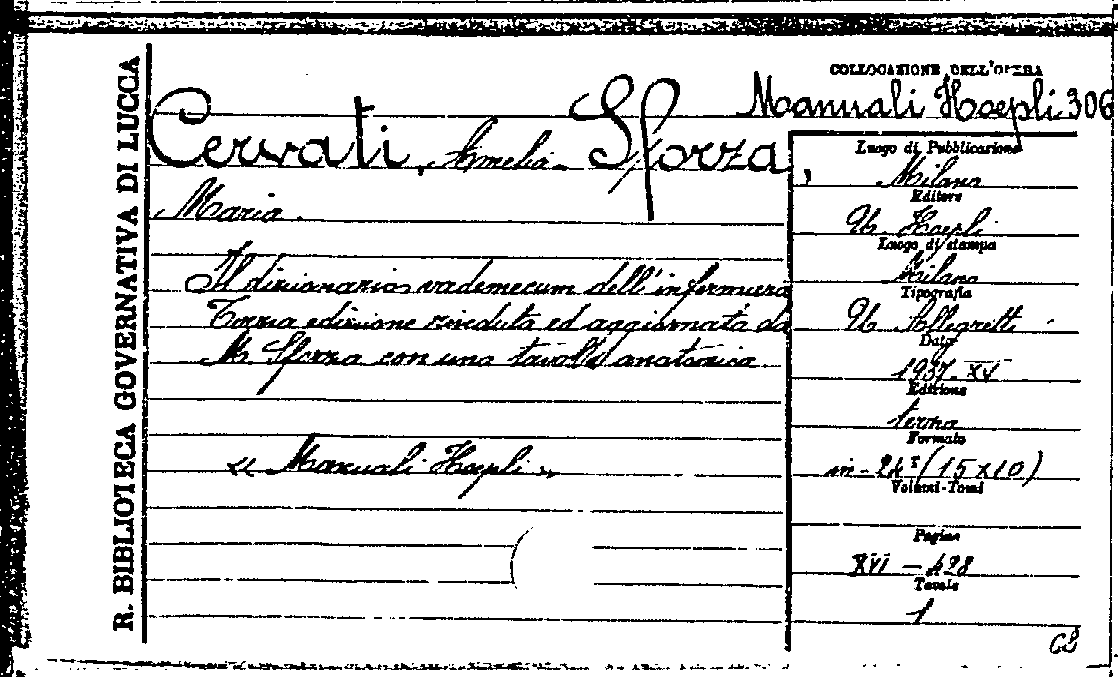 R. BIBLIOTECA GOVERNATIVA DI LUCCA
COLLOCAZIONE DELL'OPERA
Manuali Hoepli 306
Cervati, Amelia - Sforza,
Maria.
Il dizionario vademecum dell'infermiera
Terza edizione riveduta ed aggiornata da
M. Sforza con una tavola anatomica
« Manuali Hoepli »
Luogo di Pubblicazione
Milano
Editore
U. Hoepli
Luogo di stampa
Milano
Tipografia
U. Allegretti
Data
1937-XV
Edizione
terza
Formato
in-24° (15x10)
Volumi-Tomi
Pagine
XVI - 428
Tavole
1